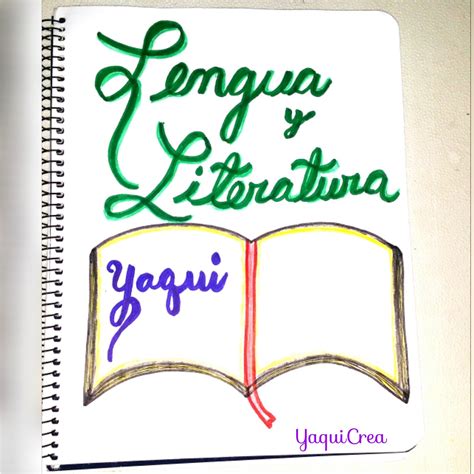 Lengua
y
Literatura
Yaqui
YaquiCrea